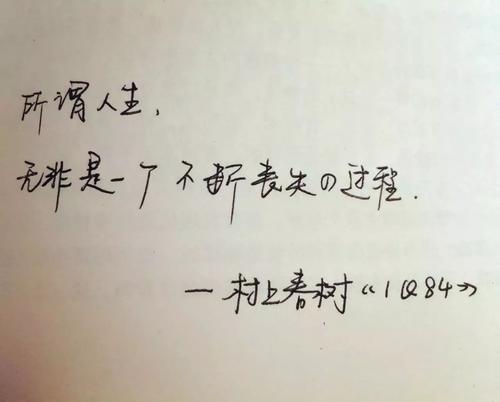 所谓人生，
无非是一个不断丧失の过程.
—村上春树《1Q84》